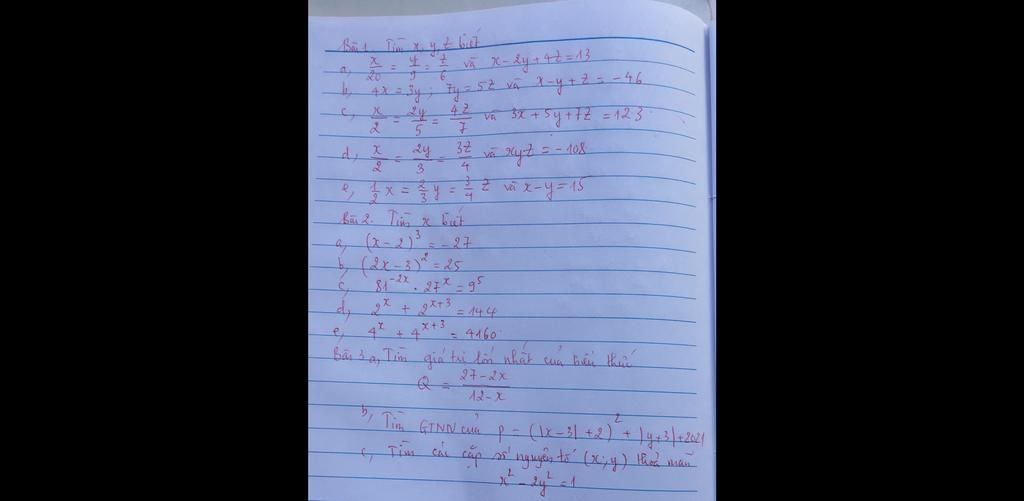 Bài 1. Tìm x, y, z biết
a, x/20 = y/9 = z/6 và x - 2y + 4z = 13
b, 4x = 3y ; 7y = 5z và x - y + z = -46
c, x/2 = 2y/5 = 4z/7 và 3x + 5y + 7z = 123
d, x/2 = 2y/3 = 3z/4 và xyz = -108
e, 1/2 x = 2/3 y = 3/4 z và x - y = 15
Bài 2. Tìm x biết
a, (x - 2)³ = -27
b, (2x - 3)² = 25
c, 81⁻²ˣ . 27ˣ = 9⁵
d, 2ˣ + 2ˣ⁺³ = 144
e, 4ˣ + 4ˣ⁺³ = 4160
Bài 3 a, Tìm giá trị lớn nhất của biểu thức
Q = 27 - 2x / 12 - x
b, Tìm GTNN của P = (|x - 3| + 2)² + |y + 3| + 2021
c, Tìm các cặp số nguyên tố (x; y) thoả mãn
x² - 2y² = 1